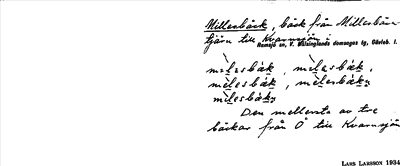 Millesbäck, bäck från Millesbäcks-
tjärn till Kvarnsjön.
Ramsjö sn, V. Hälsinglands domsagas tg, Gävleb. l.
mìlesbäk, mìlesbäk,
mìlesbäk, mìlesbäkɳ
mìlesbäkɳ
Den mellersta av tre
bäckar från Ö till Kvarnsjön
LARS LARSSON 1934